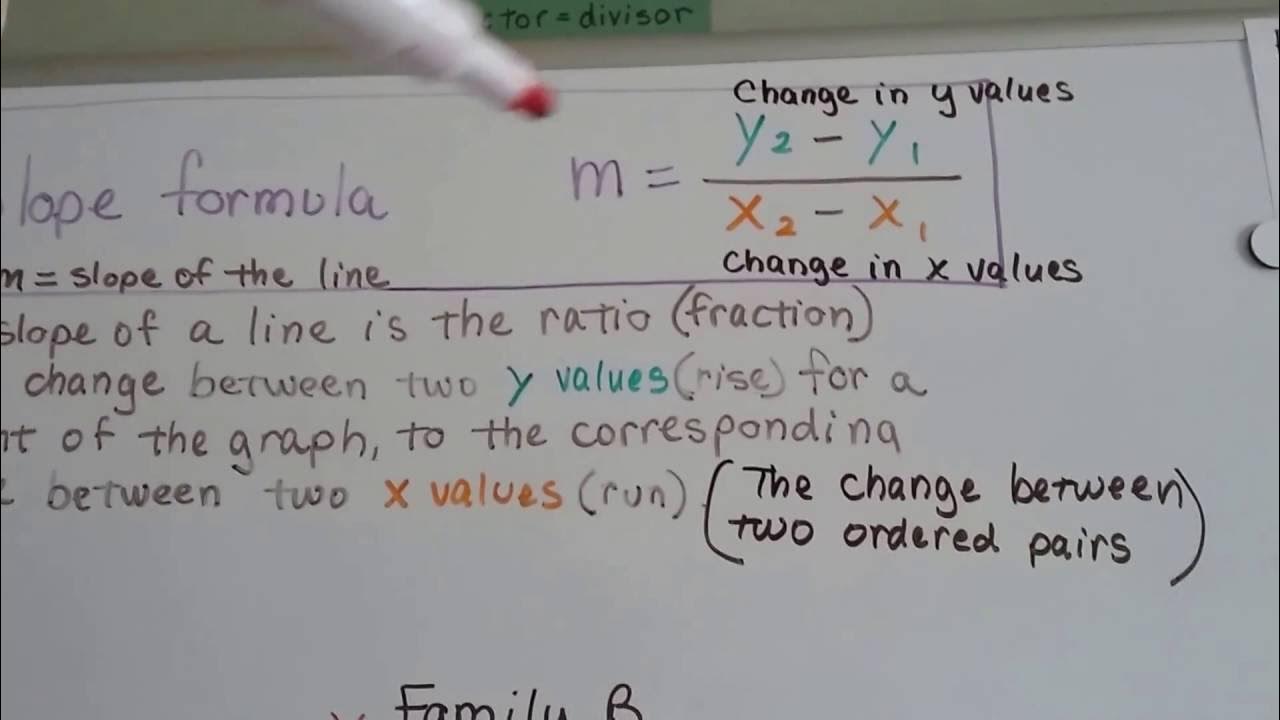 ctor = divisor
Change in y values
lope formula m = y2 - y1 / x2 - x1
m = slope of the line
Change in x values
slope of a line is the ratio (fraction)
change between two y values (rise) for a
nt of the graph, to the corresponding
between two x values (run) (The change between
two ordered pairs)
Family B